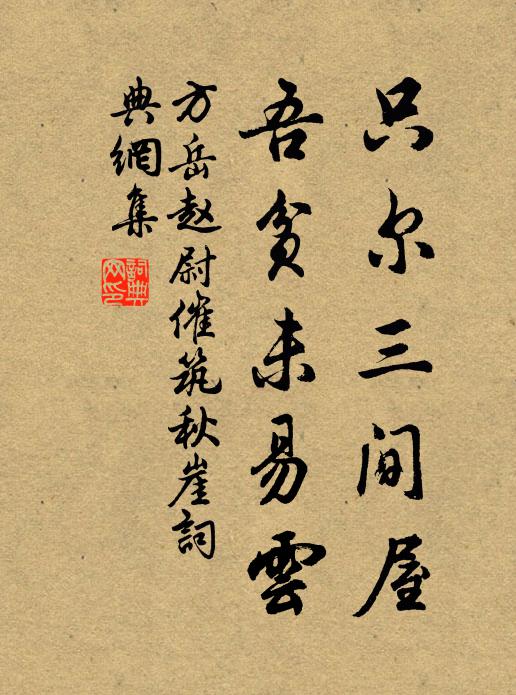 只尔三间屋
吾贫未易雲
方岳赵尉催筑秋崖詞
典網集
詞典
网印